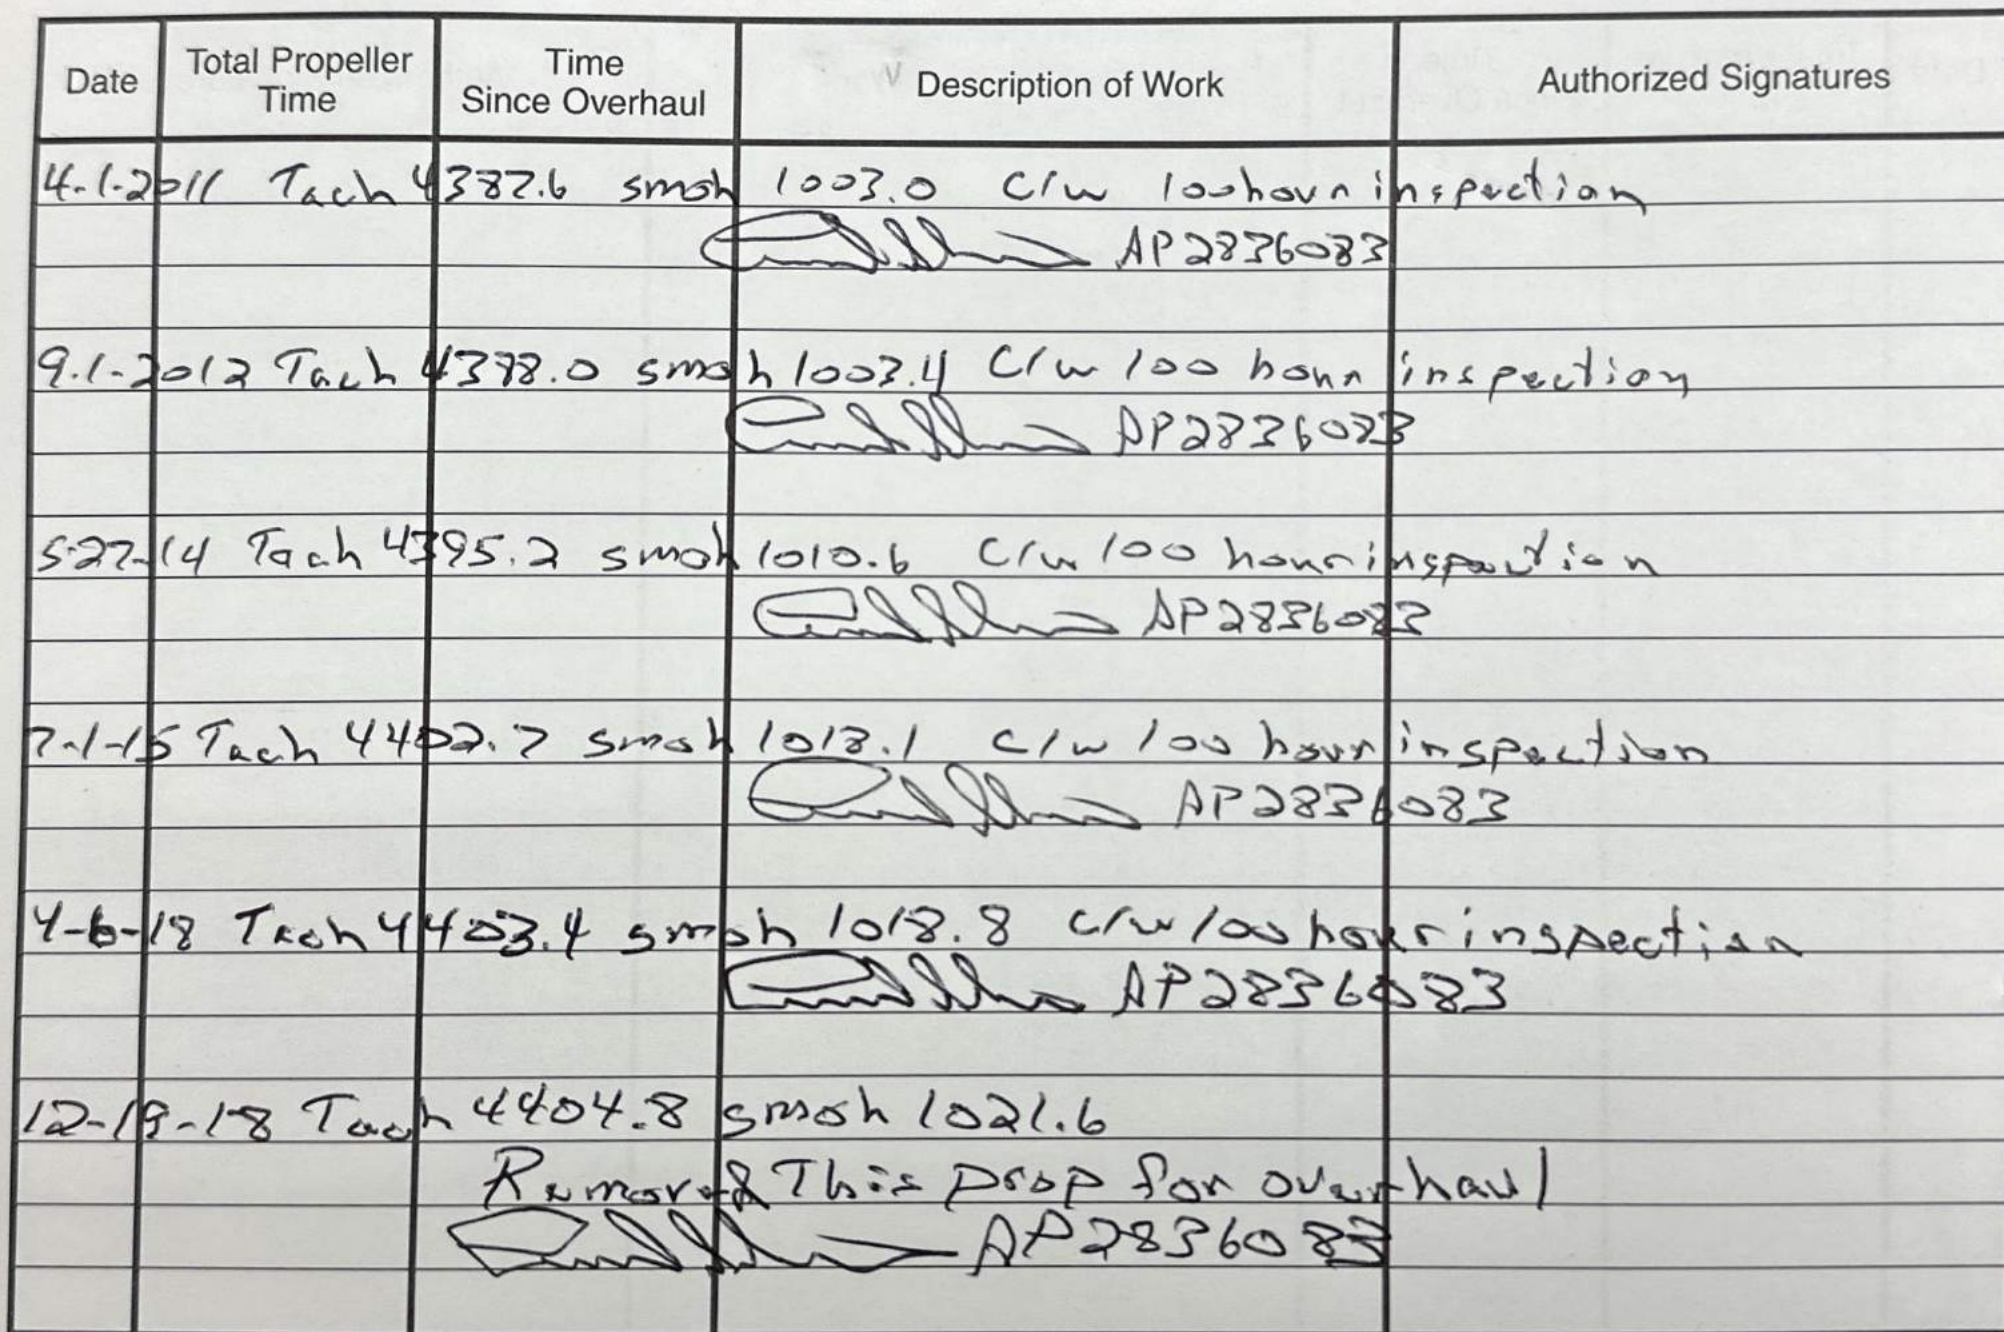 Date
Total Propeller
Time
Time
Since Overhaul
Description of Work
Authorized Signatures
4-1-2011 Tach 4387.6 smoh 1003.0 C/w 100 hour inspection
AP2836083
9-1-2012 Tach 4388.0 smoh 1003.4 C/w 100 hour inspection
AP2836083
5-27-14 Tach 4395.2 smoh 1010.6 C/w 100 hour inspection
AP2836083
7-1-15 Tach 4402.7 smoh 1018.1 c/w 100 hour inspection
AP2836083
4-6-18 Tach 4403.4 smoh 1018.8 c/w 100 hour inspection
AP2836083
12-19-18 Tach 4404.8 smoh 1021.6
Removed This prop for overhaul
AP2836083